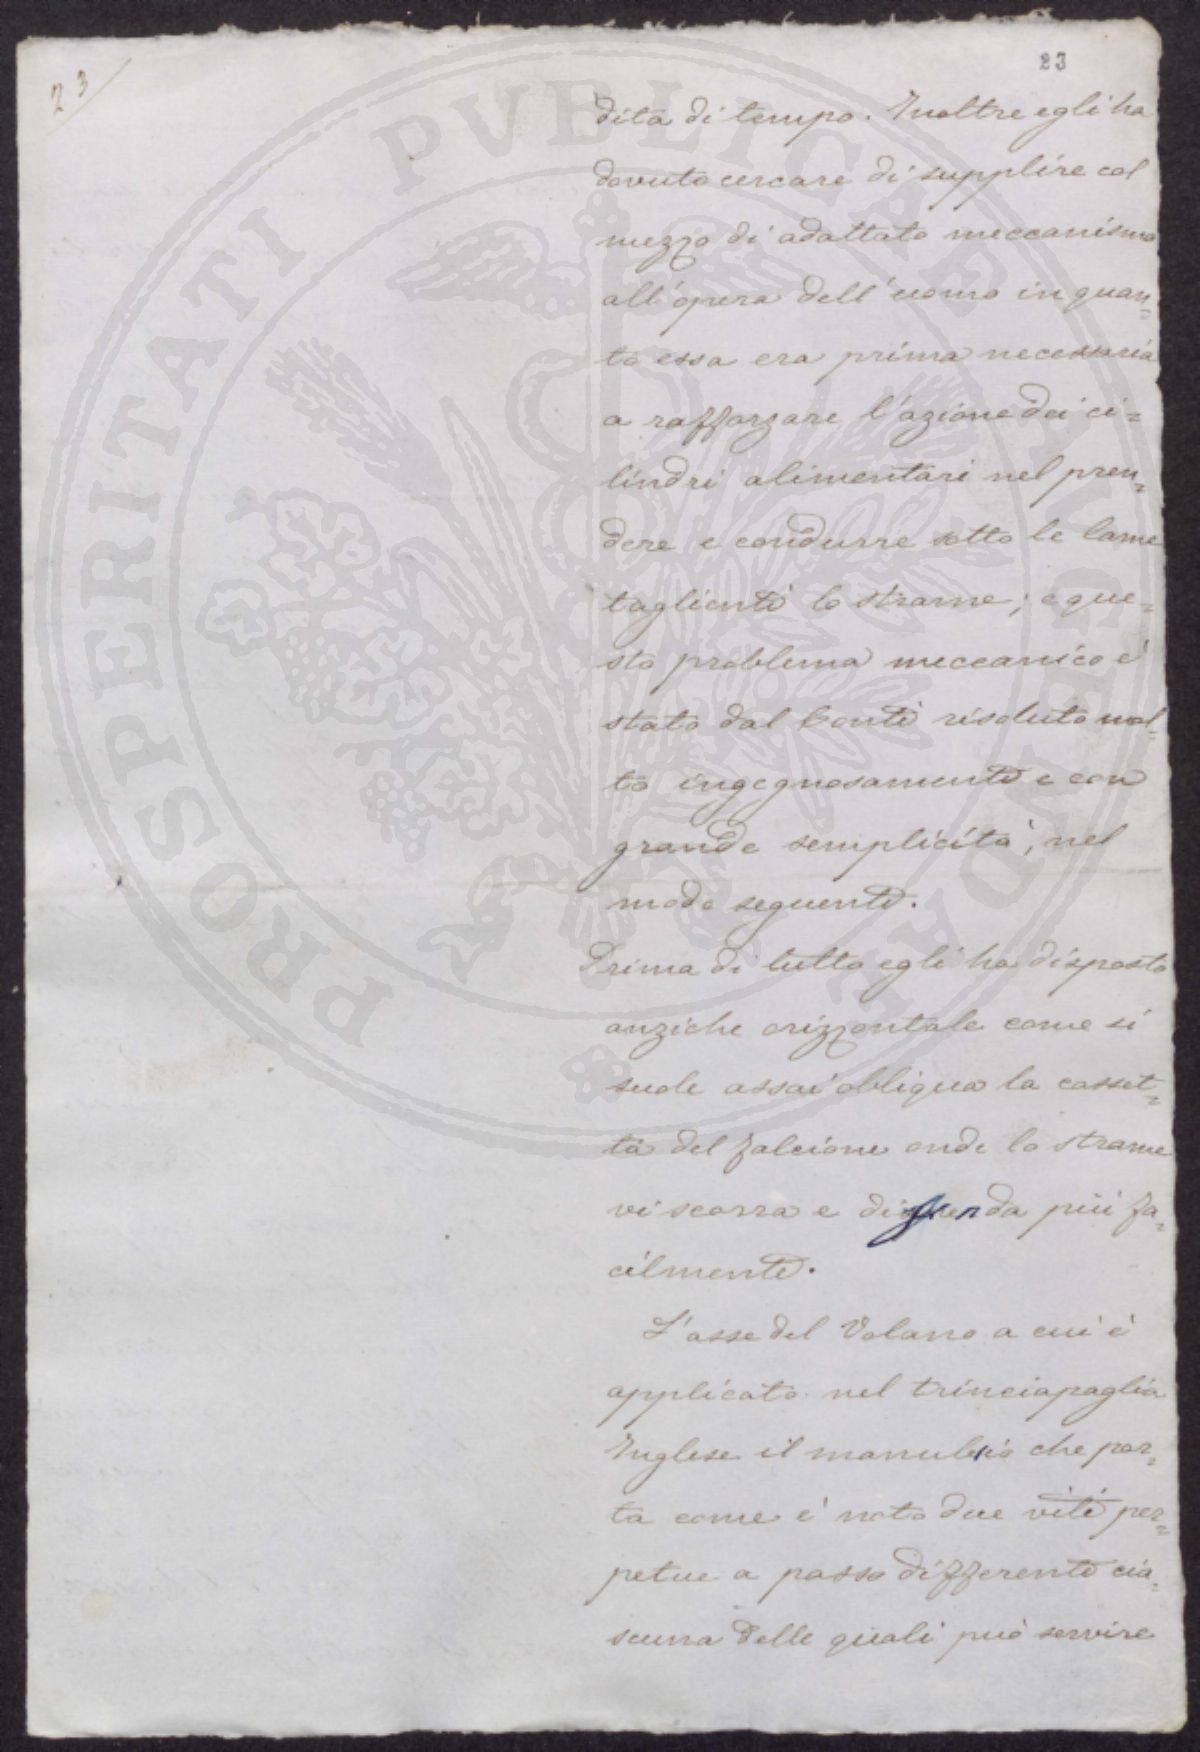 23
23
dita di tempo. Inoltre egli ha
dovuto cercare di supplire col
mezzo di adattato meccanismo
all'opera dell'uomo in quan=
to essa era prima necessaria
a rafforzare l'azione dei ci=
lindri alimentari nel pren=
dere e condurre sotto le lame
taglienti lo strame; e que=
sto problema meccanico è
stato dal Conti risoluto mol=
to ingegnosamente e con
grande semplicità, nel
modo seguente.
Prima di tutto egli ha disposto
anziche orizzontale come si
suole assai obliqua la casset=
ta del falcione onde lo strame
vi scorra e discenda più fa=
cilmente.
L'asse del Volano a cui è
applicato nel trinciapaglia
Inglese il manubrio che por=
ta come è noto due viti per=
petue a passo differente cia=
scuna delle quali può servire
PROSPERITATI PVBLICAE AVGENDAE